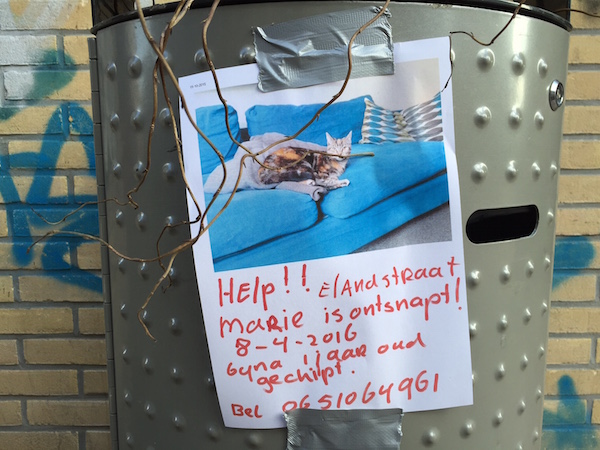 HElp!! ElAndstRaat
maRie is ontsnapt!
8-4-2016
byna 1 jaaR oud
gechipt.
Bel 0651064961